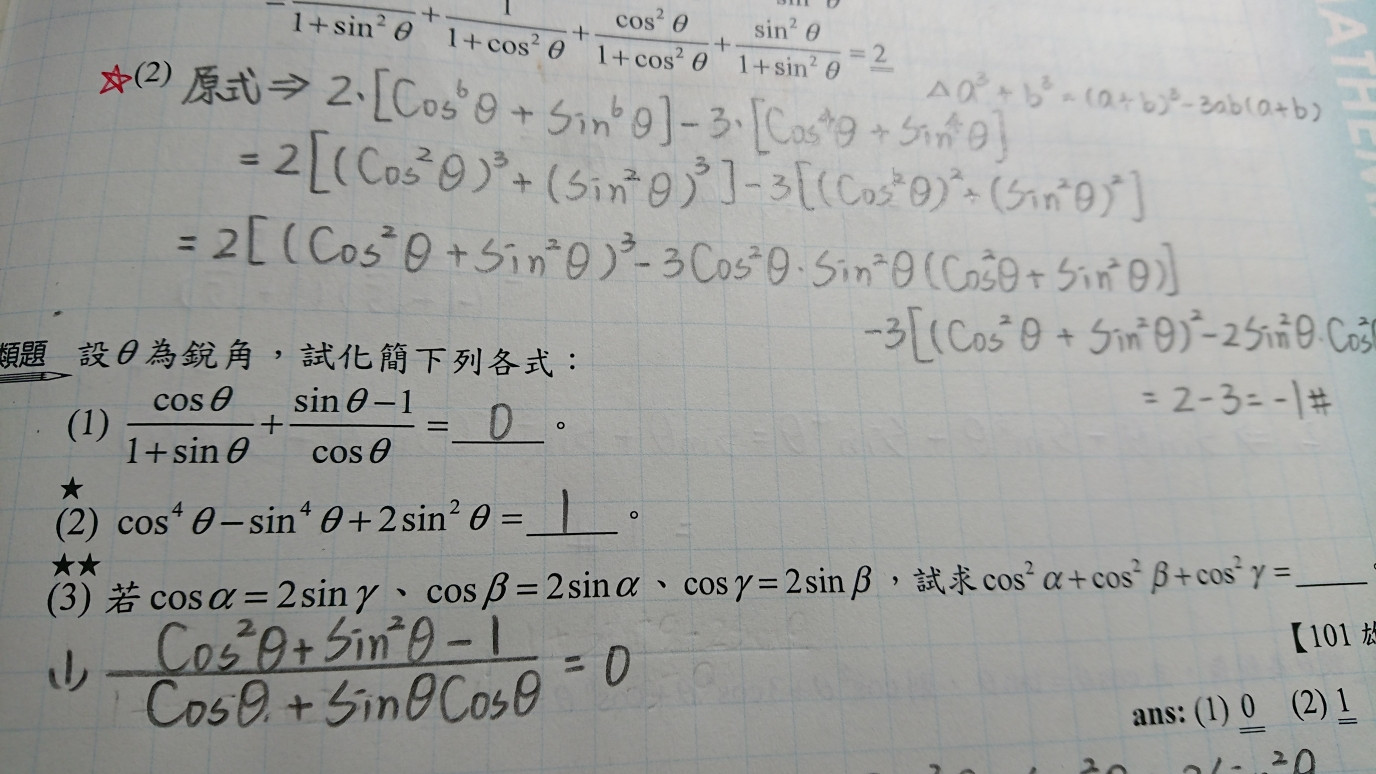 1+sin² θ + 1/(1+cos² θ) + cos² θ/(1+cos² θ) + sin² θ/(1+sin² θ) = 2
☆(2) 原式⇒ 2·[Cos⁶θ + Sin⁶θ] - 3·[Cos⁴θ + Sin⁴θ]
△a³ + b³ = (a+b)³ - 3ab(a+b)
= 2[(Cos²θ)³ + (Sin²θ)³] - 3[(Cos²θ)² + (Sin²θ)²]
= 2[(Cos²θ + Sin²θ)³ - 3Cos²θ·Sin²θ(Cos²θ + Sin²θ)]
-3[(Cos²θ + Sin²θ)² - 2Sin²θ·Cos²
= 2-3 = -1#
類題 設θ為銳角，試化簡下列各式：
(1) cosθ/(1+sinθ) + (sinθ-1)/cosθ = 0 。
★
(2) cos⁴ θ - sin⁴ θ + 2sin² θ = 1 。
★★
(3) 若 cosα = 2sinγ、cosβ = 2sinα、cosγ = 2sinβ，試求 cos² α + cos² β + cos² γ = ____
【101
(1) (Cos²θ + Sin²θ - 1)/(Cosθ + SinθCosθ) = 0
ans: (1) 0 (2) 1